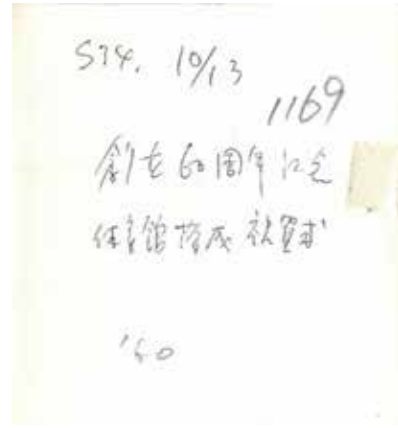 S34. 10/13
1169
創立60周年記念
体育館落成祝賀式
'60